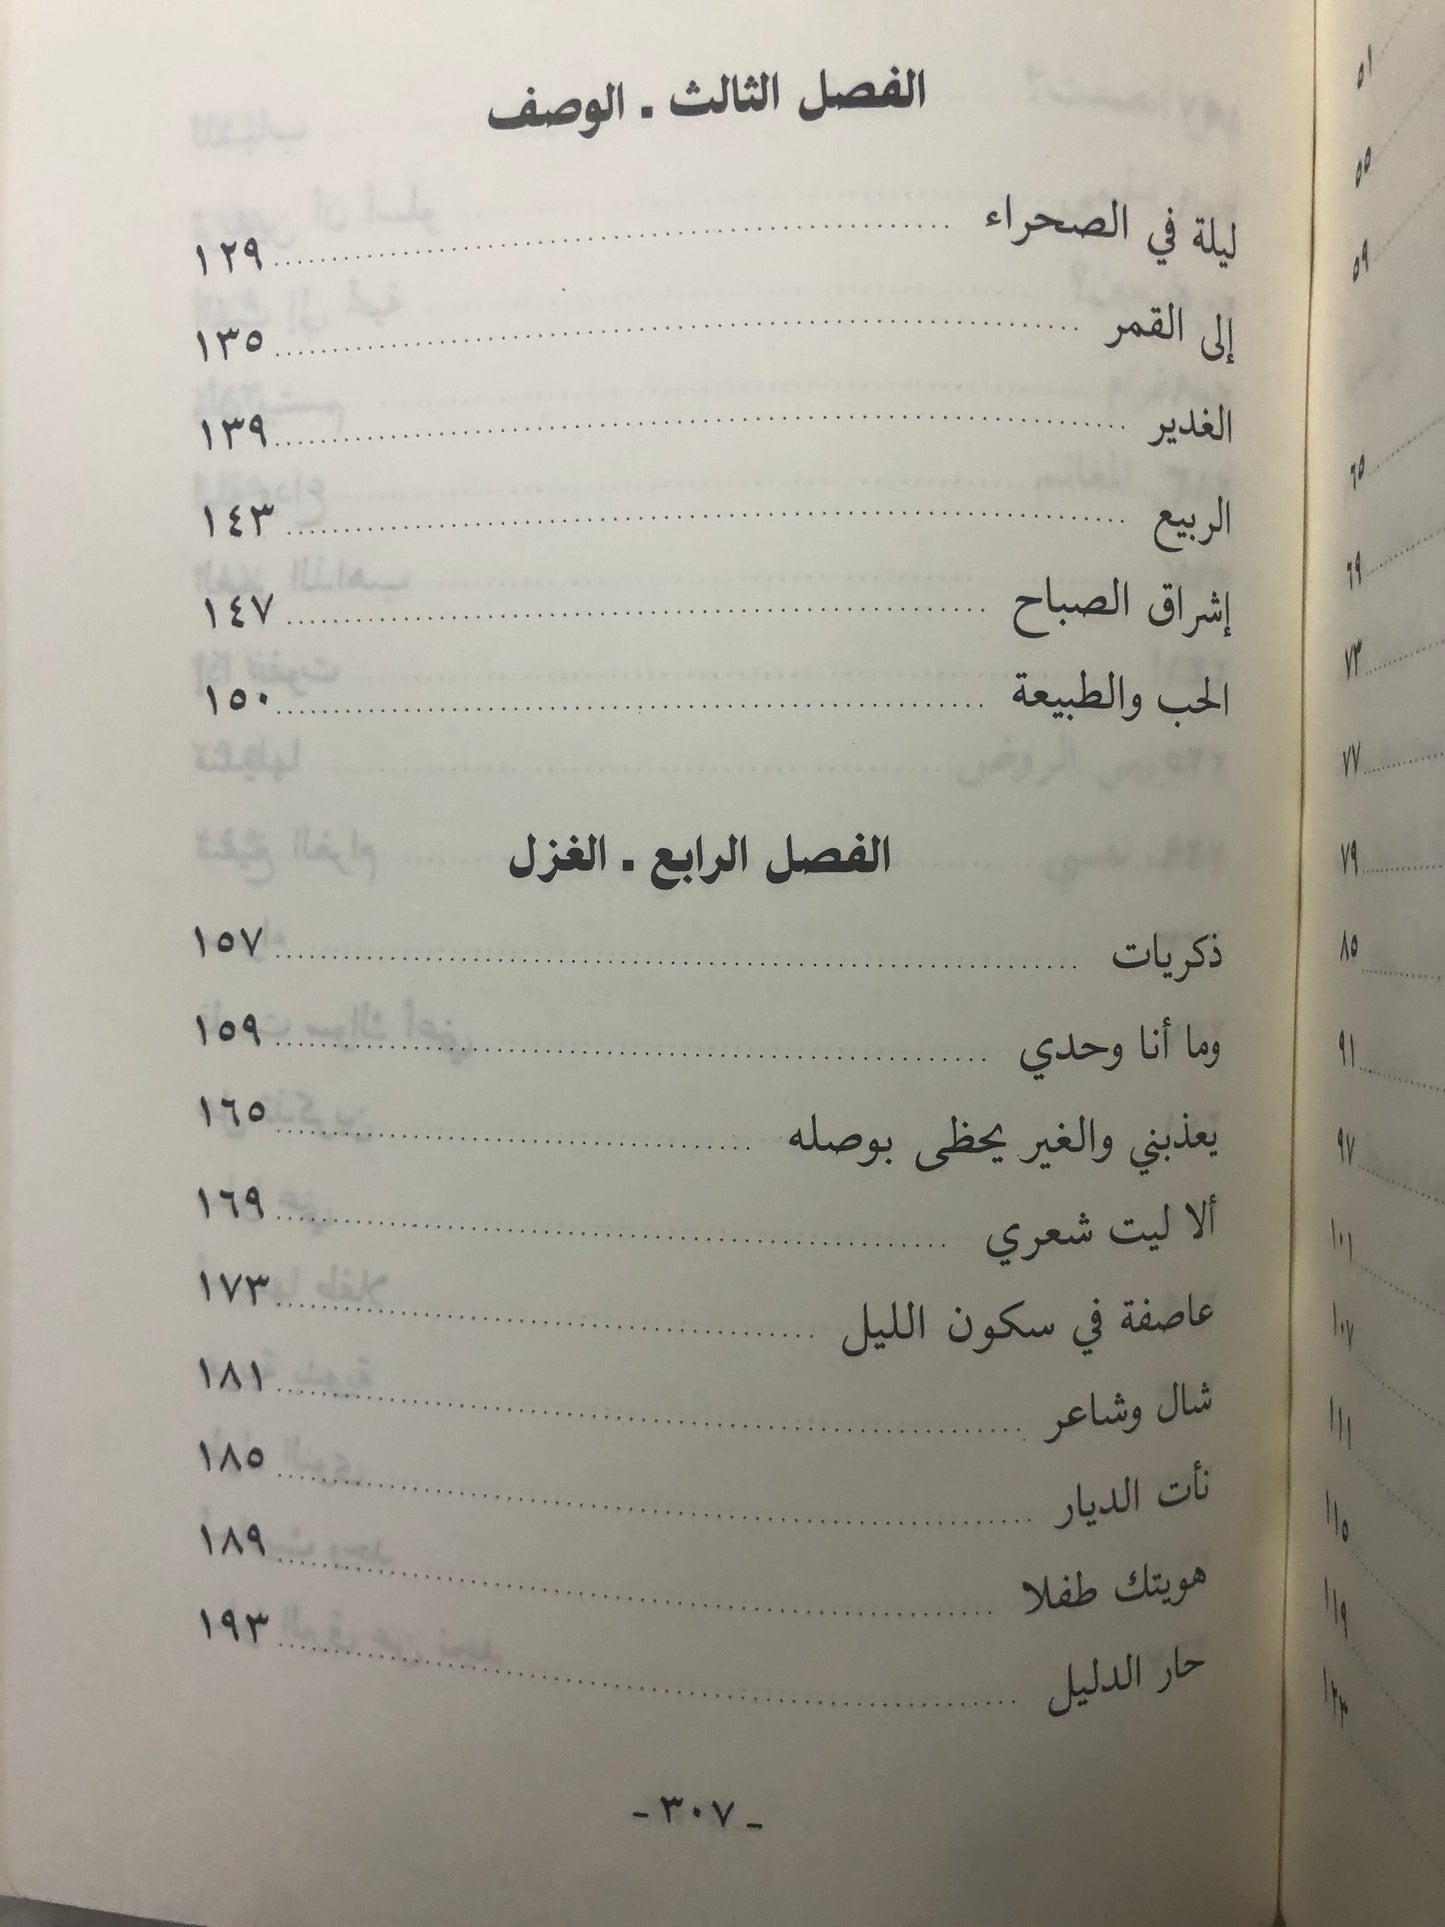 الفصل الثالث . الوصف
ليلة في الصحراء ١٢٩
إلى القمر ١٣٥
الغدير ١٣٩
الربيع ١٤٣
إشراق الصباح ١٤٧
الحب والطبيعة ١٥٠
الفصل الرابع . الغزل
ذكريات ١٥٧
وما أنا وحدي ١٥٩
يعذبني والغير يحظى بوصله ١٦٥
ألا ليت شعري ١٦٩
عاصفة في سكون الليل ١٧٣
شال وشاعر ١٨١
نأت الديار ١٨٥
هويتك طفلا ١٨٩
حار الدليل ١٩٣
- ٣٠٧ -
٥١
٥٥
٥٩
٦٥
٦٩
٧٣
٧٧
٧٩
٨٥
٩١
٩٧
١٠١
١٠٧
١١١
١١٥
١١٩
١٢٣